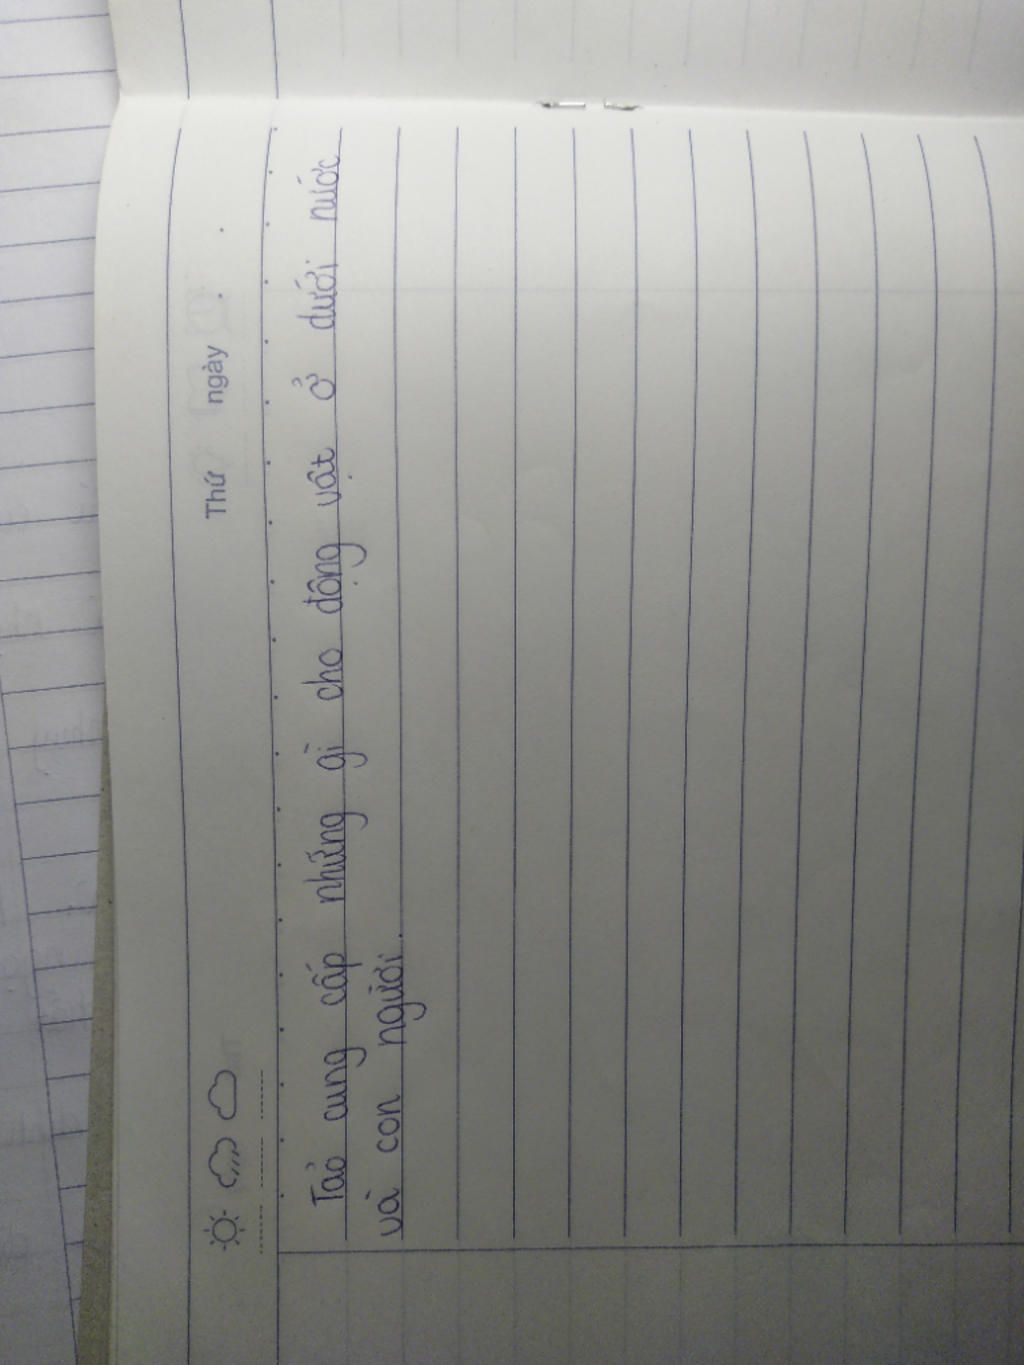 Thứ ngày . .
Tảo cung cấp những gì cho động vật ở dưới nước
và con người.